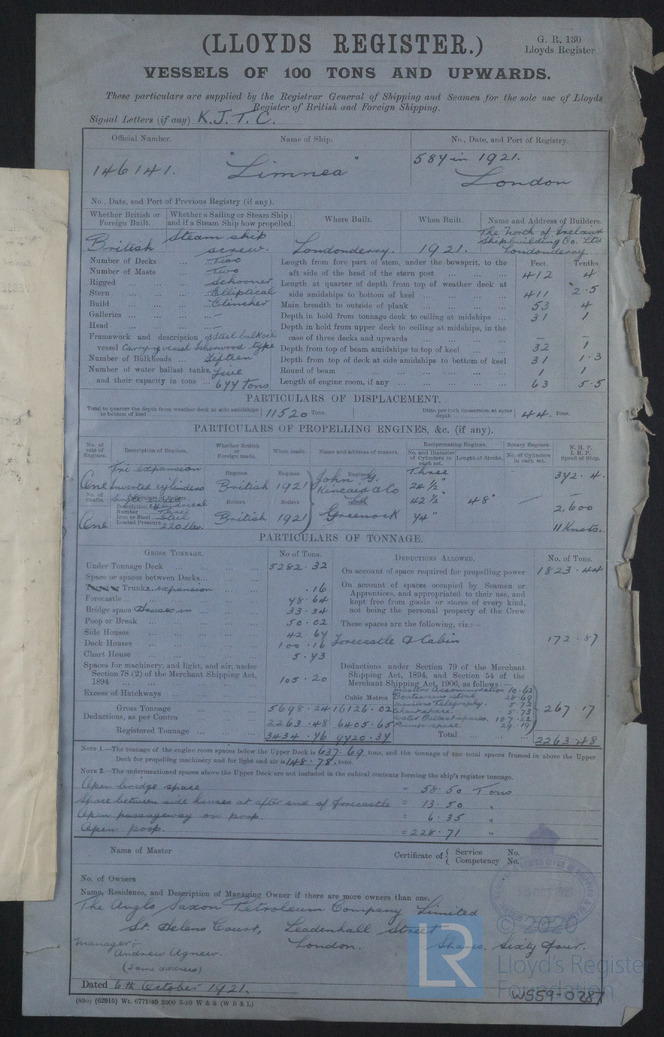 (LLOYDS REGISTER.)
G. R. 130
Lloyds Register
VESSELS OF 100 TONS AND UPWARDS.
These particulars are supplied by the Registrar General of Shipping and Seamen for the sole use of Lloyds
Register of British and Foreign Shipping.
Signal Letters (if any) K.J.T.C.
Official Number. Name of Ship. No., Date, and Port of Registry.
146141. "Limnea" 584 in 1921.
London
No., Date, and Port of Previous Registry (if any).
Whether British or Foreign Built. Whether a Sailing or Steam Ship; and if a Steam Ship how propelled. Where Built. When Built. Name and Address of Builders.
British Steam ship screw. Londonderry. 1921. The North of Ireland Shipbuilding Co. Ltd Londonderry
Number of Decks Two
Number of Masts Two
Rigged Schooner
Stern Elliptical
Build Clincher
Galleries —
Head —
Framework and description of vessel Steel type
Number of Bulkheads
Number of water ballast tanks, and their capacity in tons Five 644 tons
Feet. Tenths.
Length from fore part of stem, under the bowsprit, to the aft side of the head of the stern post 412 4
Length at quarter of depth from top of weather deck at side amidships to bottom of keel 411 2.5
Main breadth to outside of plank 53 4
Depth in hold from tonnage deck to ceiling at midships 31 1
Depth in hold from upper deck to ceiling at midships, in the case of three decks and upwards — —
Depth from top of beam amidships to top of keel 32 1
Depth from top of deck at side amidships to bottom of keel 31 1.3
Round of beam 1 1
Length of engine room, if any 63 5.5
PARTICULARS OF DISPLACEMENT.
Total to quarter the depth from weather deck at side amidships to bottom of keel 11520 Tons.
Ditto per inch immersion at same depth 44. Tons.
PARTICULARS OF PROPELLING ENGINES, &c. (if any).
No. of sets of Engines. Description of Engines. Whether British or Foreign. When made. Name and address of makers. Reciprocating Engines. Rotary Engines. N. H. P. I. H. P. Speed of Ship.
No. and Diameter of Cylinders in each set. Length of Stroke. No. of Cylinders in each set.
One Tri expansion Inverted cylinders
Engines British Engines 1921
Engines John G. Kincaid & Co Ltd Greenock
Three
42½"
48"
—
392.4
2,600
11 Knots.
One Number Three
Iron or Steel Steel
Loaded Pressure 220 lbs.
Boilers British Boilers 1921
PARTICULARS OF TONNAGE.
GROSS TONNAGE. No of Tons.
Under Tonnage Deck 5282.32
Space or spaces between Decks
Trunk expansion .16
Forecastle 48.64
Bridge space 33.34
Poop or Break 50.02
Side Houses 42.64
Deck Houses 100.16
Chart House 5.43
Spaces for machinery, and light, and air, under Section 78 (2) of the Merchant Shipping Act, 1894 105.20
Excess of Hatchways
Cubic Metres
Gross Tonnage 5698.24 16126.02
Deductions, as per Contra 2263.48 6405.65
Registered Tonnage 3434.76 9720.37
DEDUCTIONS ALLOWED. No. of Tons.
On account of space required for propelling power 1823.44
On account of spaces occupied by Seamen or Apprentices, and appropriated to their use, and kept free from goods or stores of every kind, not being the personal property of the Crew
These spaces are the following, viz.:—
Forecastle & Cabin 172.87
Deductions under Section 79 of the Merchant Shipping Act, 1894, and Section 54 of the Merchant Shipping Act, 1906, as follows:—
Masters Accommodation 10.62
Boatswains store
Wireless Telegraphy 5.72
Chartspace 5.73
Water Ballast spaces 107.22
267.17
Total 2263.48
NOTE 1.—The tonnage of the engine room spaces below the Upper Deck is 637.69 tons, and the tonnage of the total spaces framed in above the Upper
Deck for propelling machinery and for light and air is 148.78, tons.
NOTE 2.—The undermentioned spaces above the Upper Deck are not included in the cubical contents forming the ship's register tonnage.
Open bridge space = 58.50 Tons
Space between side houses at after end of forecastle = 13.50 "
Open passageway on poop. = 6.35 "
Open poop. = 228.71 "
Name of Master Certificate of { Service No.
Competency No.
No. of Owners
Name, Residence, and Description of Managing Owner if there are more owners than one.
The Anglo Saxon Petroleum Company Limited
St. Helens Court, Leadenhall Street
London. Shares, Sixty Four.
Manager:- Andrew Agnew.
(Same address)
Dated 6th October 1921.
© 2020
LR
Lloyd's Register
Foundation
W559-0287